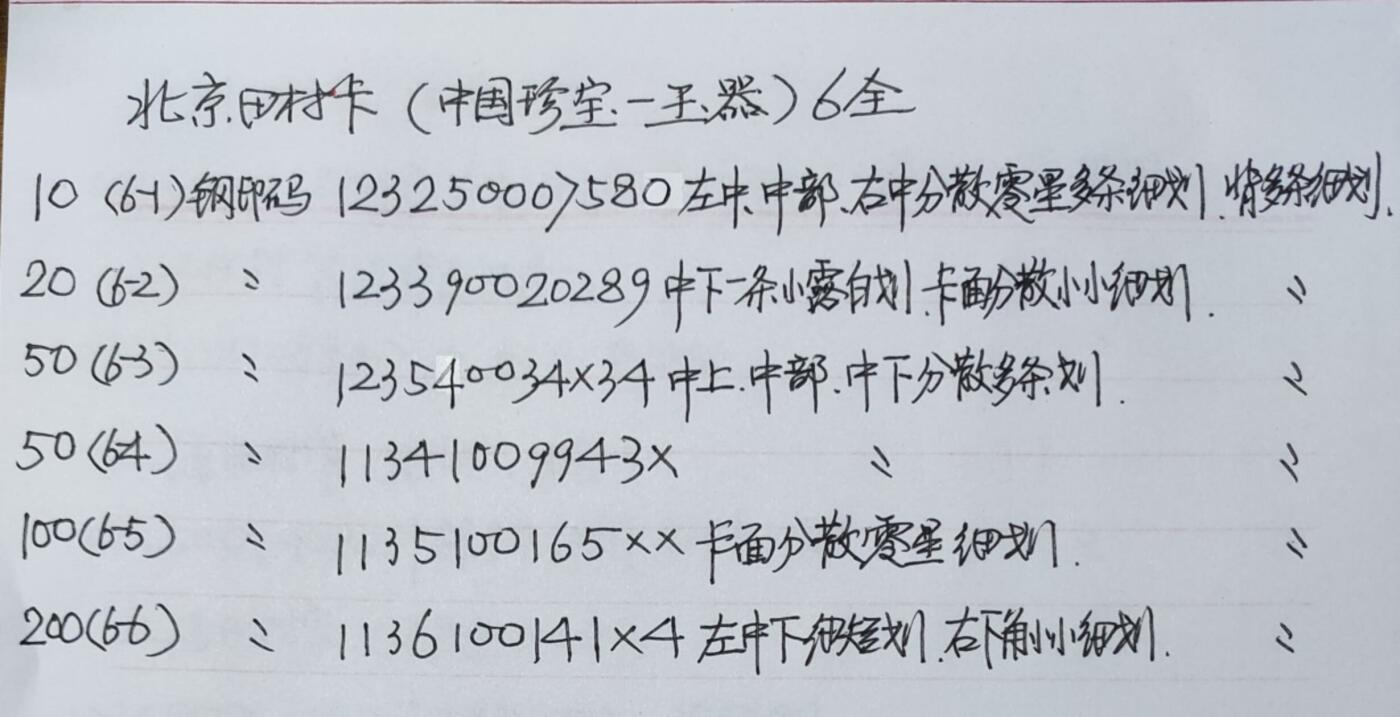 北京田村卡（中国珍宝.一玉器）6全
10 (6-1) 钢印码 123250007580 左中、中部、右中分散零星多条细划. 背多条细划.
20 (6-2) 〃 123390020289 中下一条小露白划.卡面分散小小细划. 〃
50 (6-3) 〃 123540034×34 中上.中部.中下分散多条划. 〃
50 (6-4) 〃 11341009943× 〃 〃
100 (6-5) 〃 1135100165×× 卡面分散零星细划. 〃
200 (6-6) 〃 1136100141×4 左中下细短划.右下角小小细划. 〃